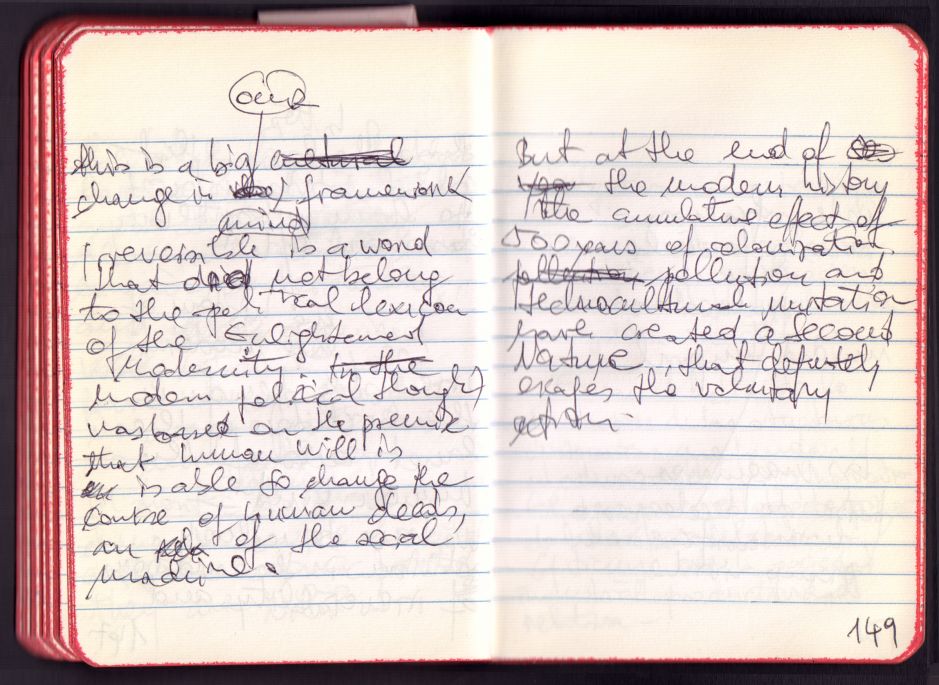 our
this is a big cultural
change in framework
mind
irreversible is a word
that did not belong
to the political lexicon
of the Enlightement
Modernity. In the
modern political thought
was based on the premise
that human will is
is able to change the
course of human deeds,
an of the social
machine.
But at the end of
the modern history
the cumulative effect of
500 years of colonization
pollution, pollution and
technocultural mutation
have created a second
Nature, that defintely
escapes the voluntary
action.
149